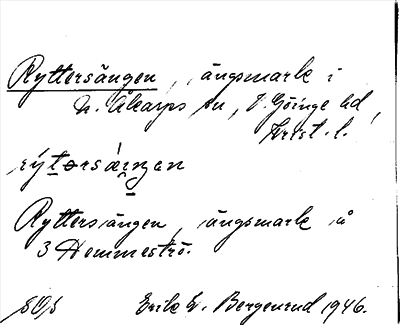 Ryttersängen, ängsmark i
N. Åkarps sn, V. Göinge hd,
Krist. l.
rýtərsäŋən
Ryttersängen, ängsmark å
3 Hemmeströ.
Erik W. Bergenrud 1946.